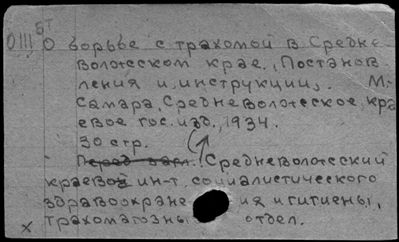 5т
О III О борьбе с трахомой в Средне-
Волжском крае. "Постанов
ления и инструкции". М.-
Самара, Средневолжское кра
евое гос. изд., 1934.
30 стр.
Перед загл.: Средневолжский
краевой ин-т социалистического
здравоохране ия и гигиены,
трахоматозны отдел.
х